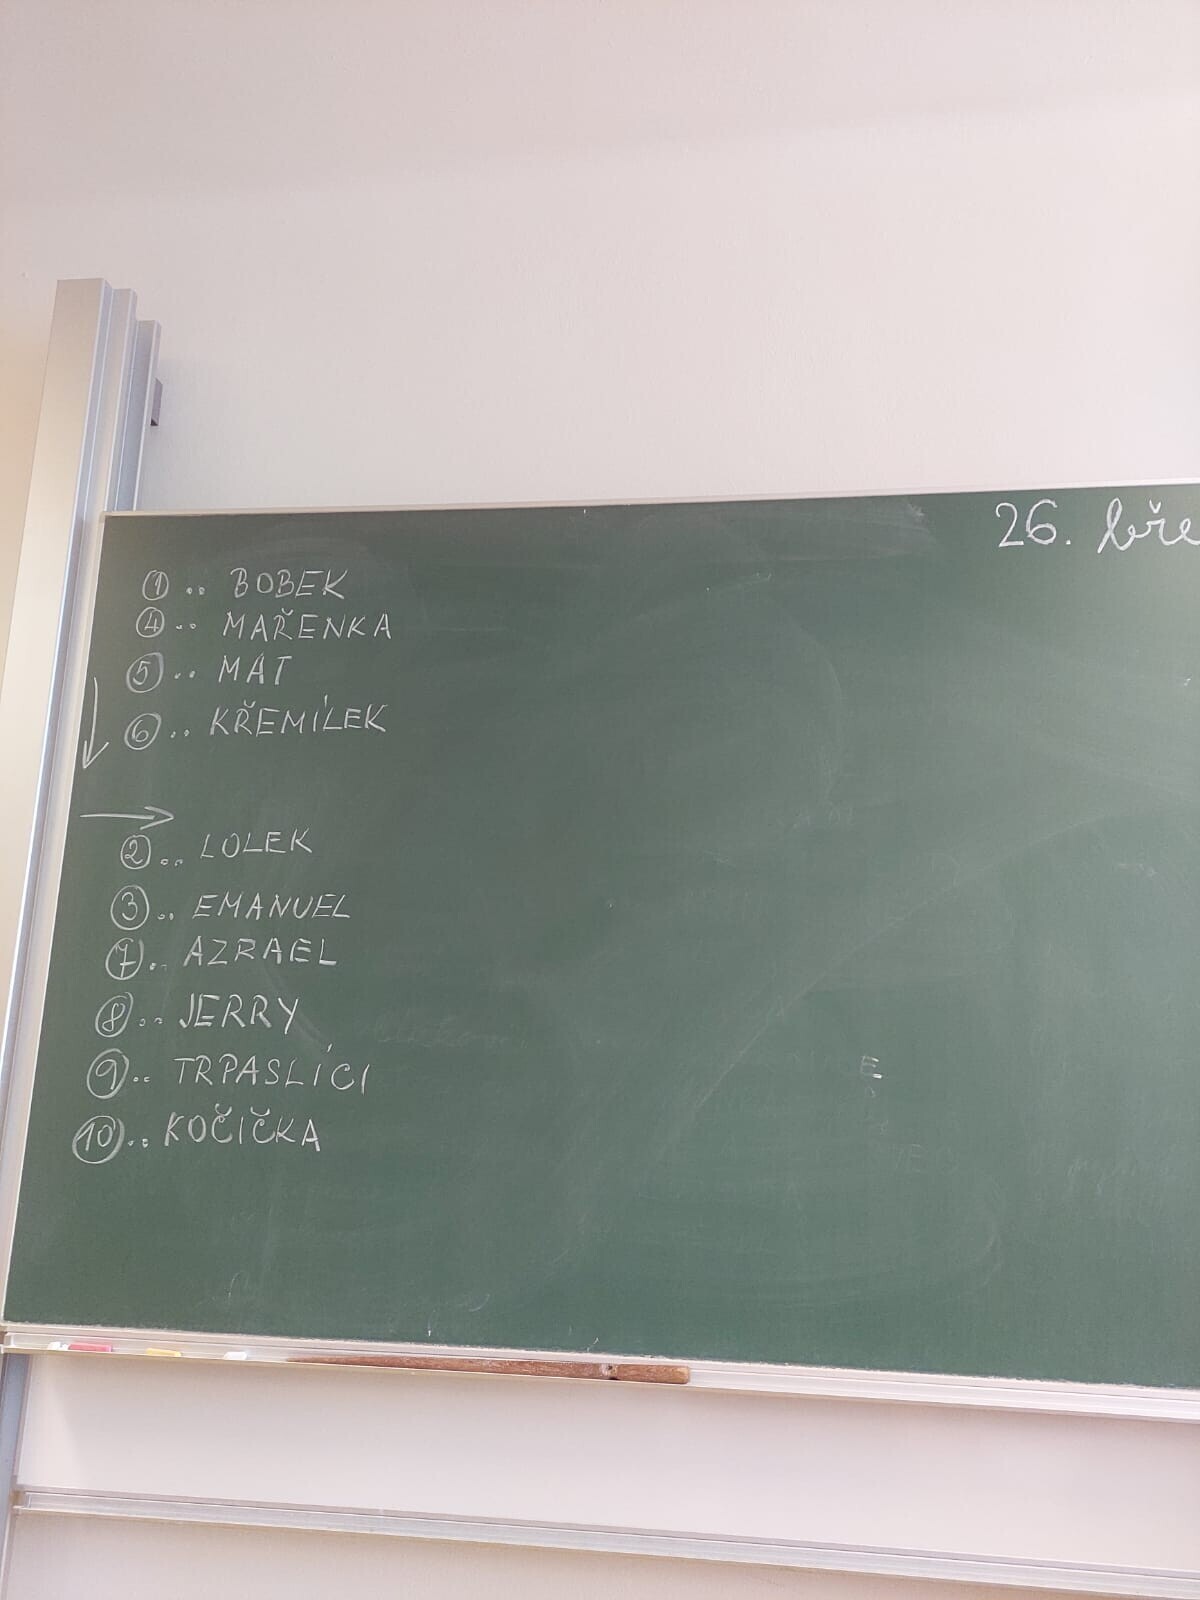 26. bře
① .. BOBEK
④ .. MAŘENKA
⑤ .. MAT
⑥ .. KŘEMÍLEK
② .. LOLEK
③ .. EMANUEL
⑦ .. AZRAEL
⑧ .. JERRY
⑨ .. TRPASLÍCI
⑩ .. KOČIČKA
E